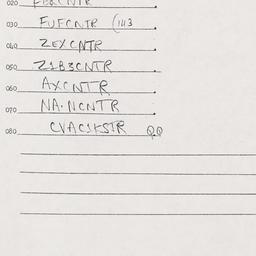 020
030 FUFCNTR (1113
040 ZEXCNTR
050 Z1B3CNTR
060 AXCNTR
070 NA.NCNTR
080 CVAC1KSTR QQ